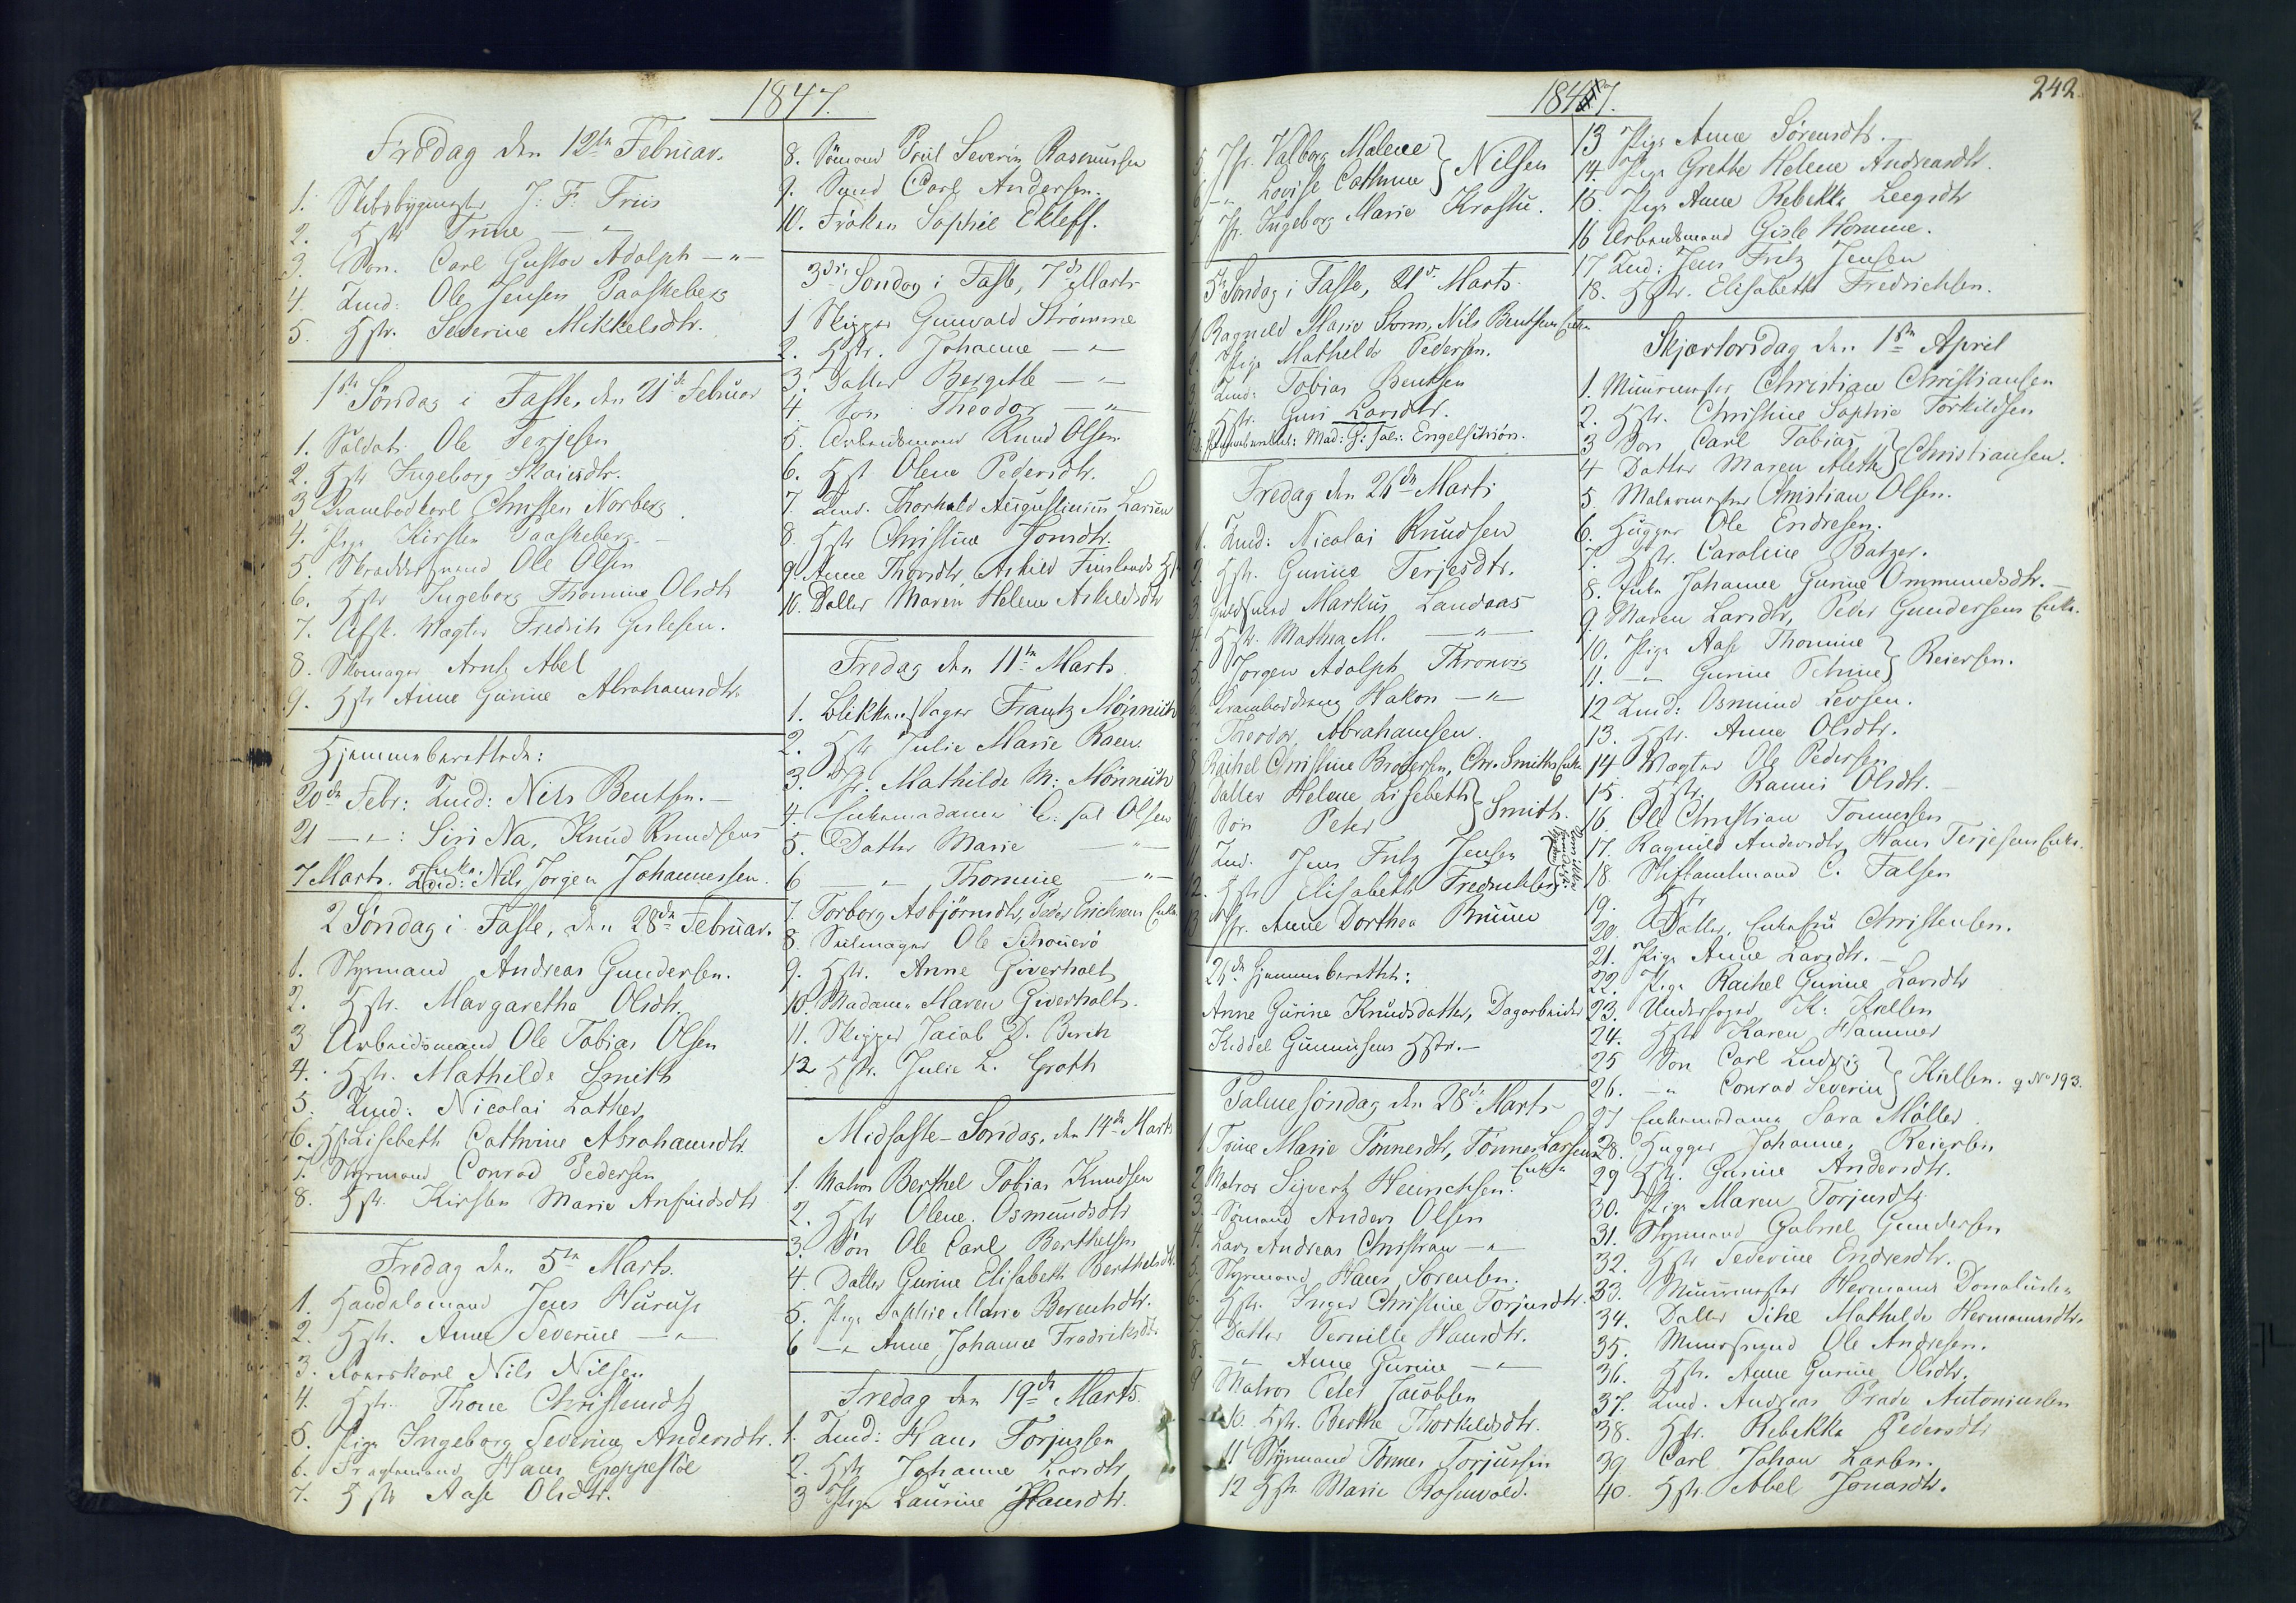 1847.
Fredag den 12te Februar.
1. Skibsbygmester J: F. Friis
2. Hstr Trine — " —
3. Søn. Carl Gustav Adolph — " —
4. Lmd: Ole Jensen Paaskeberg
5. Hstr. Severine Mikkelsdtr.
1ste Søndag i Faste, den 21de Februar
1. Soldat Ole Terjesen
2. Hstr Ingeborg
3 Krambodkarl Christen Norberg
4. Pige Kirsten Paaskeberg. —
5. Skræddersvend Ole Olsen
6. Hstr Ingeborg Thomine Olsdtr
7. Afsk. Vægter Fredrik Gislesen.
8. Skomager Arnt Abel
9. Hstr Anne Gurine Abrahamsdtr.
Hjemmeberettede:
20de Febr: Lmd: Nils Bentsen. —
21 — " — : Siri Na, Knud Knudsens
Enke.
7 Marts. Lmd: Nils Jørgen Johannessen.
2 Søndag i Faste, den 28de Februar.
1. Styrmand Andreas Gundersen.
2. Hstr. Margaretha Olsdtr.
3 Arbeidsmand Ole Tobias Olsen
4. Hstr. Mathilde Smith
5. Lmd: Nicolai Lather
6. Hstr Lisebeth Cathrine Abrahamsdtr.
7. Styrmand Conrad Pedersen
8. Hstr. Kirsten Marie Anfindsdtr
Fredag den 5te Marts.
1. Handelsmand Jens
2. Hstr. Anne Severine — " —
3. Nils Nilsen
4. Hstr. Thone Christensdtr
5. Pige Ingeborg Severine Andersdtr.
6. Fragtemand Hans Groppestøl
7. Hstr Aase Olsdtr.
8. Sömand Poul Severin Rasmussen
9. Svend Carl Andersen.
10. Frøken Sophie Ekleff.
3die Søndag i Faste, 7de Marts
1 Skipper Gunvald Strømme
2. Hstr. Johanne — " —
3. Datter Bergitte — " —
4 Søn Theodor — " —
5. Arbeidsmand Knud Olsen
6. Hst Olene Pedersdtr.
7. Lmd. Thorvald Augustinius Larsen
8. Hstr Christine Jonsdtr.
9. Anne Thorsdtr, Askild Finslands Hstr
10. Datter Maren Helene Askildsdtr
Fredag den 11te Marts.
1. Blikkenslager Frantz Mönnich
2. Hstr Julie Marie Raen.
3. Jfr. Mathilde M: Mönnich
4. Enkemadame C. sal Olsen
5. Datter Marie — " —
6 — " — Thomine — " —
7. Torborg Asbjörnsdtr, Peder Erichsens Enke
8. Seilmager Ole
9. Hstr. Anne Giverholt
10. Madame Maren Giverholt.
11. Skipper Jacob D. Berch
12 Hstr. Julie L. Groth
Midfaste-Søndag, den 14de Marts
1. Matros Berthel Tobias Knudsen
2. Hstr Olene Osmundsdtr
3. Søn Ole Carl Berthelsen
4. Datter Gurine Elisabeth Berthelsdtr.
5. Pige Sophie Marie Berentsdtr.
6 — " — Anne Johanne Fredriksdtr.
Fredag den 19de Marts
1. Lmd: Hans Torjussen
2. Hstr Johanne Larsdtr
3 Pige Laurine Hansdtr.
1847.
242.
5. Jfr. Valborg Malene } Nilsen
6 — " — Lovise Cathrine
7 Jfr. Ingeborg Marie Krostu.
5te Søndag i Faste, 21de Marts
1 Ragnild Marie Storm, Nils Bentsens Enke
2. Pige Mathilde Pedersen.
3. Lmd: Tobias Bentsen
4. Hstr. Guri Larsdtr.
Hjemmeberettet: Mad: G: Engelschiön.
Fredag den 26de Marts
1. Lmd: Nicolai Knudsen
2. Hstr. Gunild Terjesdtr.
3 Guldsmed Markus Landaas
4. Hstr. Mathea M. — " —
5. Jørgen Adolph Thronvig
6. Krambodreng Hakon — " —
7. Theodor Abrahamsen.
8 Rachel Christine Brodersen, Chr. Smiths Enke
9. Datter Helene Lisebeth } Smith.
10 Søn Peter
11 Lmd. Jens Fritz Jensen
12. Hstr Elisabeth Fredrichsen
13 Jfr. Anne Dorthea Bruun
26de Hjemmeberettet:
Anne Gurine Knudsdatter, Dagarbeider
Kiddel Gunnusens Hstr. —
Palmesøndag den 28de Marts
1 Trine Marie Tönnesdtr, Tønnes Larsens
Enke
2 Matros Sijvert Heinrichsen.
3. Sømand Anders Olsen
4. Lars Andreas Christian — " —
5. Styrmand Hans Sørensen.
6. Hstr. Inger Christine Torjusdtr.
7. Datter Pernille Hansdtr.
8. — " — Anne Gurine — " —
9 Matros Peter Jacobsen
10. Hstr. Berthe Thorkildsdtr.
11 Styrmand Tönnes Torjussen
12 Hstr Marie Rosenvold.
13 Pige Anne Sørensdtr.
14. Pige Grethe Helene Andreasdtr.
15. Pige Anne Rebekka Leegsdtr
16 Arbeidsmand Gisle Homme.
17. Lmd: Jens Fritz Jensen
18. Hstr. Elisabeth Fredrichsen.
Skjærtorsdag den 1ste April
1. Muurmester Christian Christiansen
2. Hstr. Christine Sophie Torkildsen
3 Søn Carl Tobias } Christiansen.
4 Datter Maren Alethe
5. Malermester Christian Olsen.
6. Hugger Ole Endresen.
7. Hstr. Caroline Batzer.
8. Enke Johanne Gurine Ommundsdtr. —
9. Maren Larsdtr, Peder Gundersens Enke.
10. Pige Aase Thomine } Reiersen.
11. — " — Gurine Petrine
12 Lmd: Osmund Levsen.
13. Hstr. Anne Olsdtr.
14 Vægter Ole Pedersen
15. Hstr. Rannei Olsdtr. —
16 Ole Christian Tönnessen
17. Ragnild Andersdtr, Hans Terjesens Enke.
18. Stiftamtmand C. Falsen
19. Hstr
20. Datter, Enkefru Christensen.
21. Pige Anne Larsdtr. —
22. Pige Rachel Gurine Larsdtr
23. Underfoged K: Kiellsen
24. Hstr Karen Hammer
25 Søn Carl Ludvig } Kielsen. g No 193.
26. — " — Conrad Severin
27 Enkemadame Sara Möller
28. Hugger Johannes Reiersen
29 Hstr. Gurine Andersdtr.
30. Pige Maren Torjusdtr.
31. Styrmand Gabriel Gundersen
32. Hstr Severine Endresdtr.
33. Muurmester Hermann Donatiusen
34. Datter Sihe Mathilde Hermansdtr.
35. Muursvend Ole Andresen.
36. Hstr. Anne Gurine Olsdtr.
37. Lmd. Andreas Prade Antoniussen
38. Hstr. Rebekka Pedersdtr
39 Carl Johan Larsen.
40. Hstr. Abel Jonasdtr.